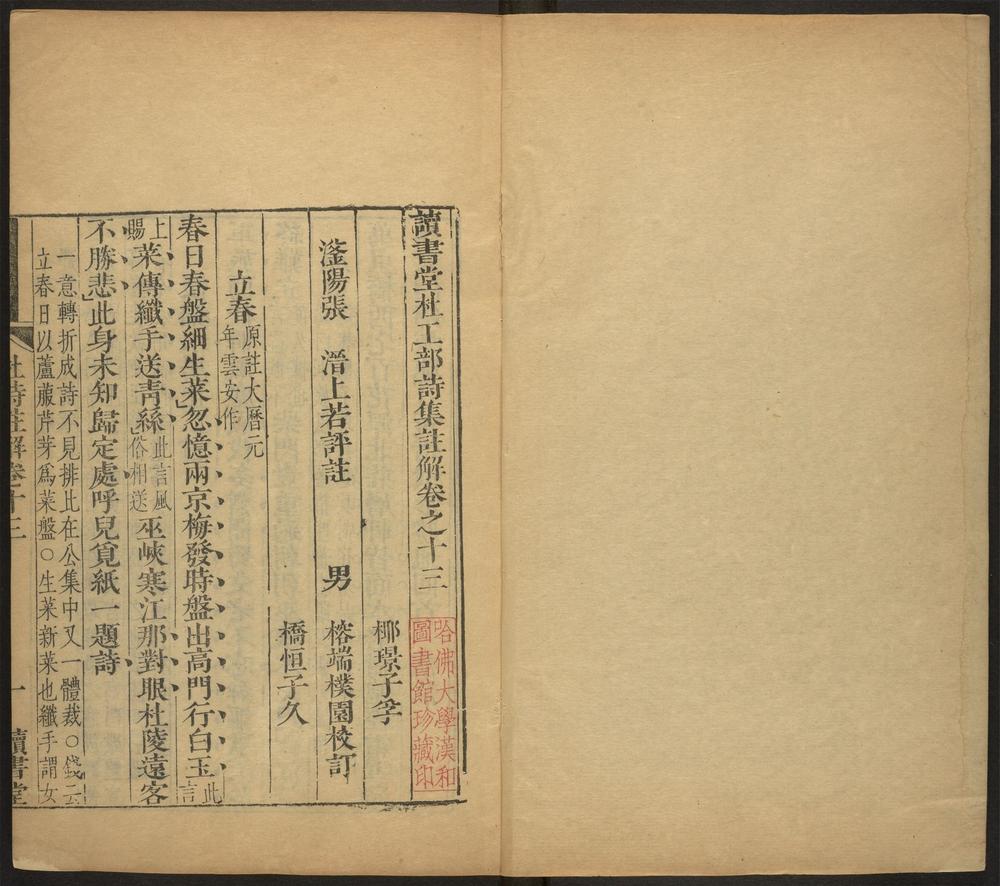 讀書堂杜工部詩集註解卷之十三
哈佛大學漢和
圖書館珍藏印
椰璟子孚
滏陽張　溍上若評註　男　榕端樸園校訂
橋恒子久
立春
原註大曆元
年雲安作
春日春盤細生菜忽憶兩京梅發時盤出高門行白玉
此
言
上
賜
菜傳纖手送青絲
此言風
俗相送
巫峽寒江那對眼杜陵遠客
不勝悲此身未知歸定處呼兒覓紙一題詩
一意轉折成詩不見排比在公集中又一體裁○錢云
立春日以蘆菔芹芽爲菜盤○生菜新菜也纖手謂女
杜詩註解卷十三
一
讀書堂